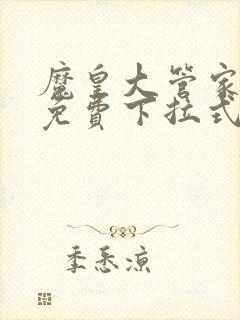 魔皇大管家
免費下拉式
季悉凉